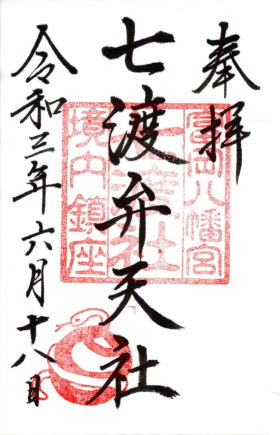 奉拝
富岡八幡宮
七渡弁天社
七渡社
境内鎮座
令和三年六月十八日